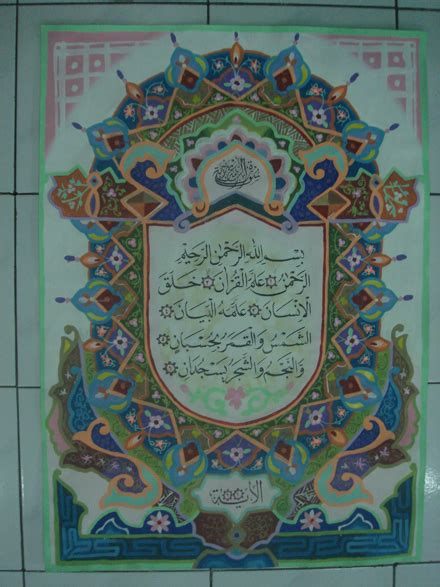 بسم الله الرحمن الرحيم
الرحمن علم القران خلق
الانسان علمه البيان
الشمس والقمر بحسبان
والنجم والشجر يسجدان
الاية